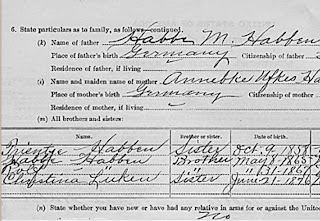 6. State particulars as to family, as follows—continued.
(k) Name of father Habbe M. Habben
Place of father's birth Germany Citizenship of father
Residence of father, if living
(l) Name and maiden name of mother Annebke Ufkes Ha
Place of mother's birth Germany Citizenship of
Residence of mother, if living
(m) All brothers and sisters:
Name. Brother or Sister. Date of birth.
Habben Sister Oct. 9, 1858
Habbe Habben Brother May 8 1865
" "
Christina Lüken Sister June 21-1876
(n) State whether you have now or have had any relative in arms for or against the United
No